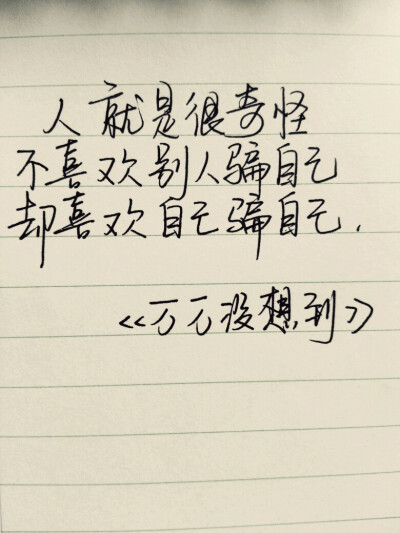 人就是很奇怪
不喜欢别人骗自己
却喜欢自己骗自己.
<<万万没想到>>